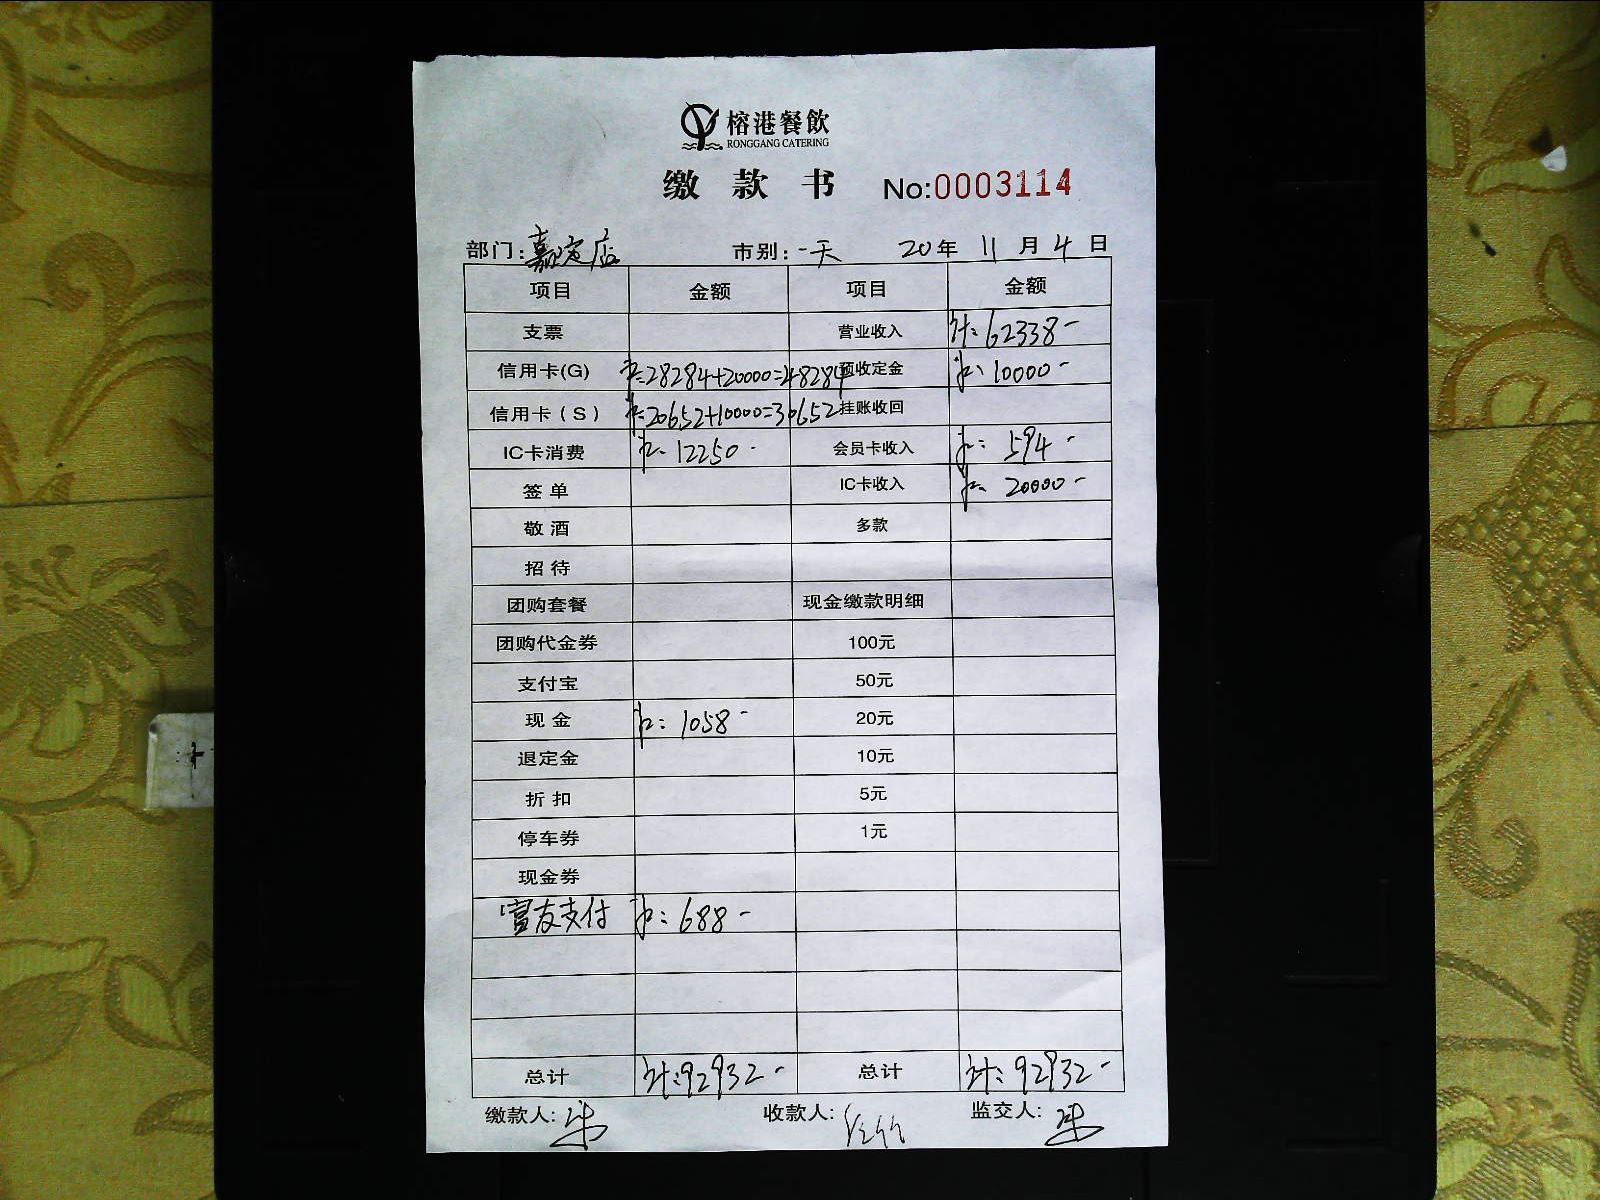 榕港餐飲
RONGGANG CATERING
缴款书 No:0003114
部门:嘉定店 市别:一天 20年11月4日
项目 金额 项目 金额
支票 营业收入 计:62338-
信用卡(G) 28284+20000=48284 预收定金 10000-
信用卡(S) 20652+10000=30652 挂账收回
IC卡消费 12250- 会员卡收入 594-
签单 IC卡收入 20000-
敬酒 多款
招待
团购套餐 现金缴款明细
团购代金券 100元
支付宝 50元
现金 1058- 20元
退定金 10元
折扣 5元
停车券 1元
现金券
富友支付 688-
总计 计:92932- 总计 计:92932-
缴款人: 收款人: 监交人: